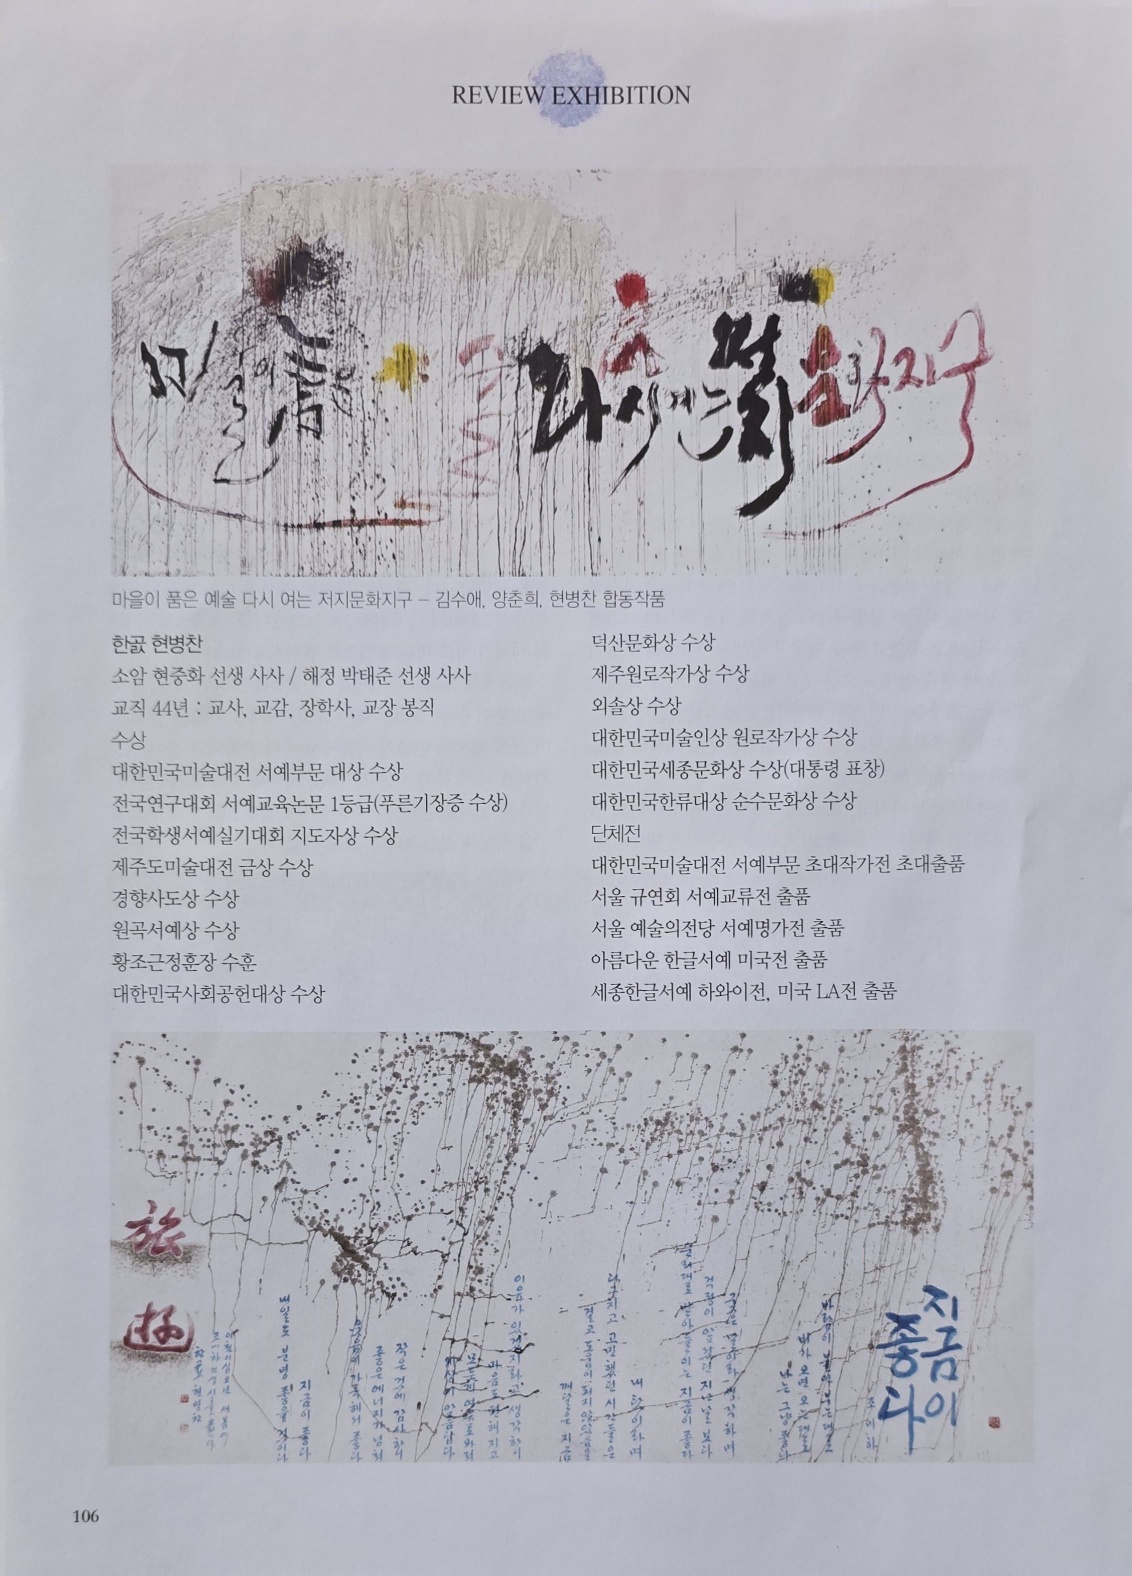 REVIEW EXHIBITION
마을이 품은 예술 다시 여는 저지문화지구 – 김수애, 양춘희, 현병찬 합동작품
한곬 현병찬
소암 현중화 선생 사사 / 해정 박태준 선생 사사
교직 44년 : 교사, 교감, 장학사, 교장 봉직
수상
대한민국미술대전 서예부문 대상 수상
전국연구대회 서예교육논문 1등급(푸른기장증 수상)
전국학생서예실기대회 지도자상 수상
제주도미술대전 금상 수상
경향사도상 수상
원곡서예상 수상
황조근정훈장 수훈
대한민국사회공헌대상 수상
덕산문화상 수상
제주원로작가상 수상
외솔상 수상
대한민국미술인상 원로작가상 수상
대한민국세종문화상 수상(대통령 표창)
대한민국한류대상 순수문화상 수상
단체전
대한민국미술대전 서예부문 초대작가전 초대출품
서울 규연회 서예교류전 출품
서울 예술의전당 서예명가전 출품
아름다운 한글서예 미국전 출품
세종한글서예 하와이전, 미국 LA전 출품
지금이
좋다
나는 그냥 좋다
내 탓이라며
지금이 좋다
내일도 분명 좋을 것이다
旅
遊
106